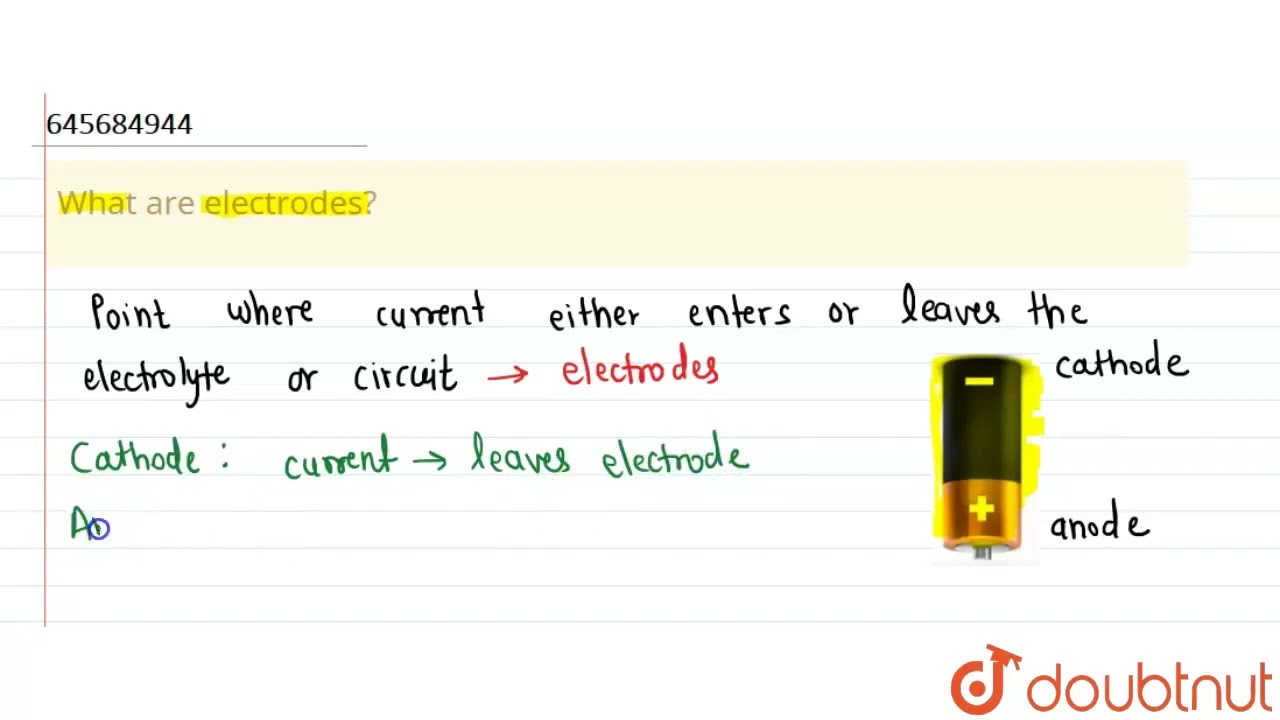 645684944
What are electrodes?
Point where current either enters or leaves the
electrolyte or circuit → electrodes
cathode
−
Cathode : current → leaves electrode
+
An
anode
doubtnut